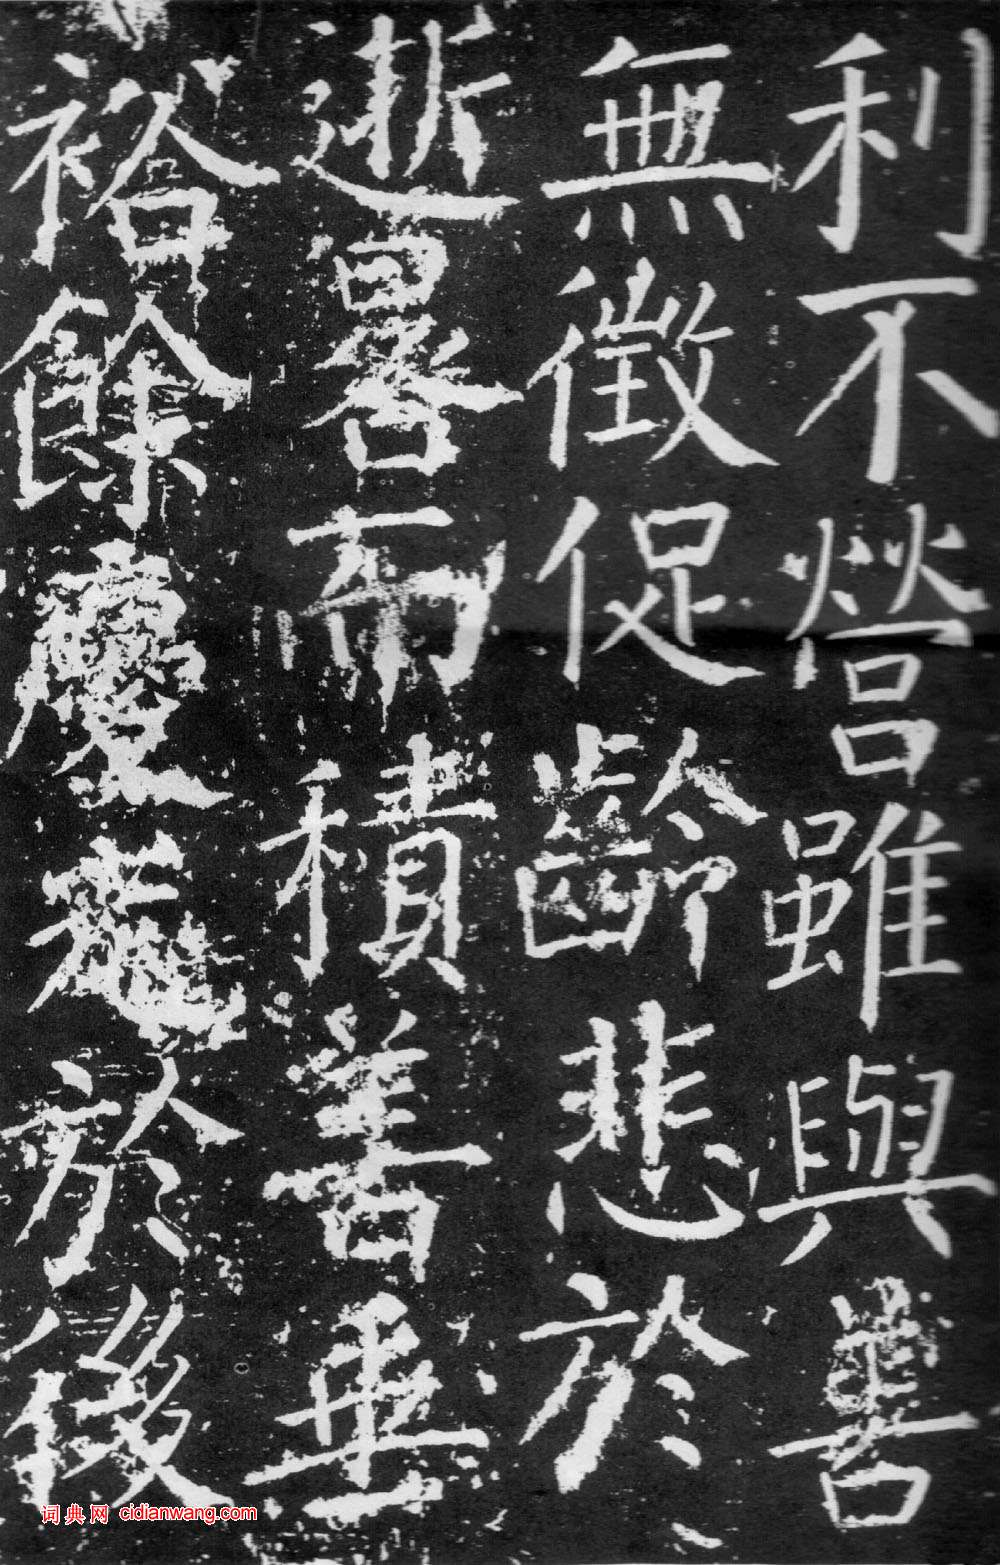 利不營雖與善
無徵促齡悲於
逝晷而積善垂
裕餘慶於後
词典网 cidianwang.com